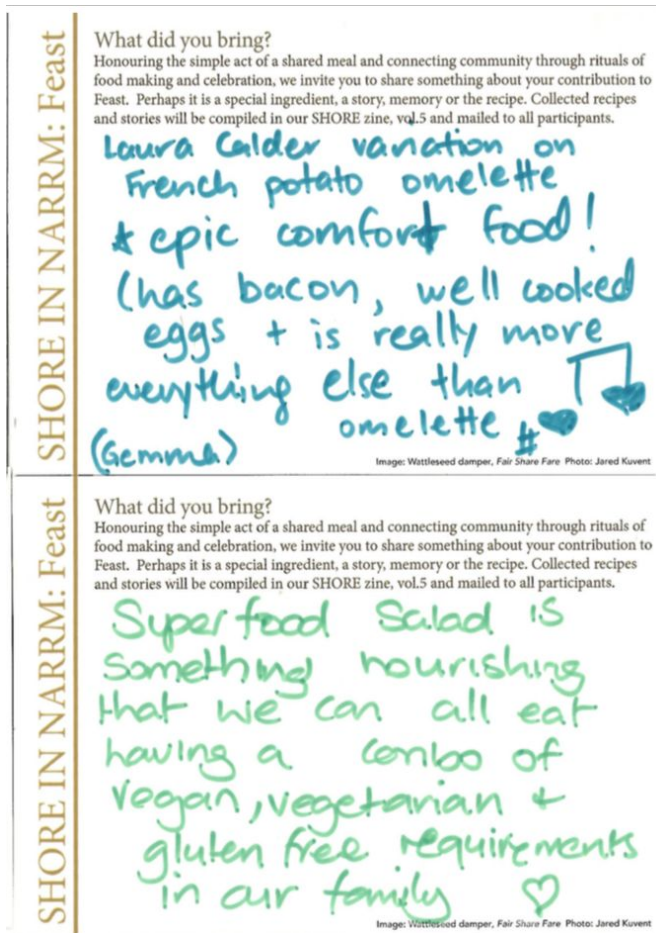 SHORE IN NARRM: Feast
What did you bring?
Honouring the simple act of a shared meal and connecting community through rituals of
food making and celebration, we invite you to share something about your contribution to
Feast. Perhaps it is a special ingredient, a story, memory or the recipe. Collected recipes
and stories will be compiled in our SHORE zine, vol.5 and mailed to all participants.
Laura Calder variation on
French potato omelette
* epic comfort food!
(has bacon, well cooked
eggs + is really more
everything else than
omelette #
(Gemma)
Image: Wattleseed damper, Fair Share Fare Photo: Jared Kuvent
SHORE IN NARRM: Feast
What did you bring?
Honouring the simple act of a shared meal and connecting community through rituals of
food making and celebration, we invite you to share something about your contribution to
Feast. Perhaps it is a special ingredient, a story, memory or the recipe. Collected recipes
and stories will be compiled in our SHORE zine, vol.5 and mailed to all participants.
Superfood Salad is
something nourishing
that we can all eat
having a combo of
vegan, vegetarian +
gluten free requirements
in our family ♡
Image: Wattleseed damper, Fair Share Fare Photo: Jared Kuvent